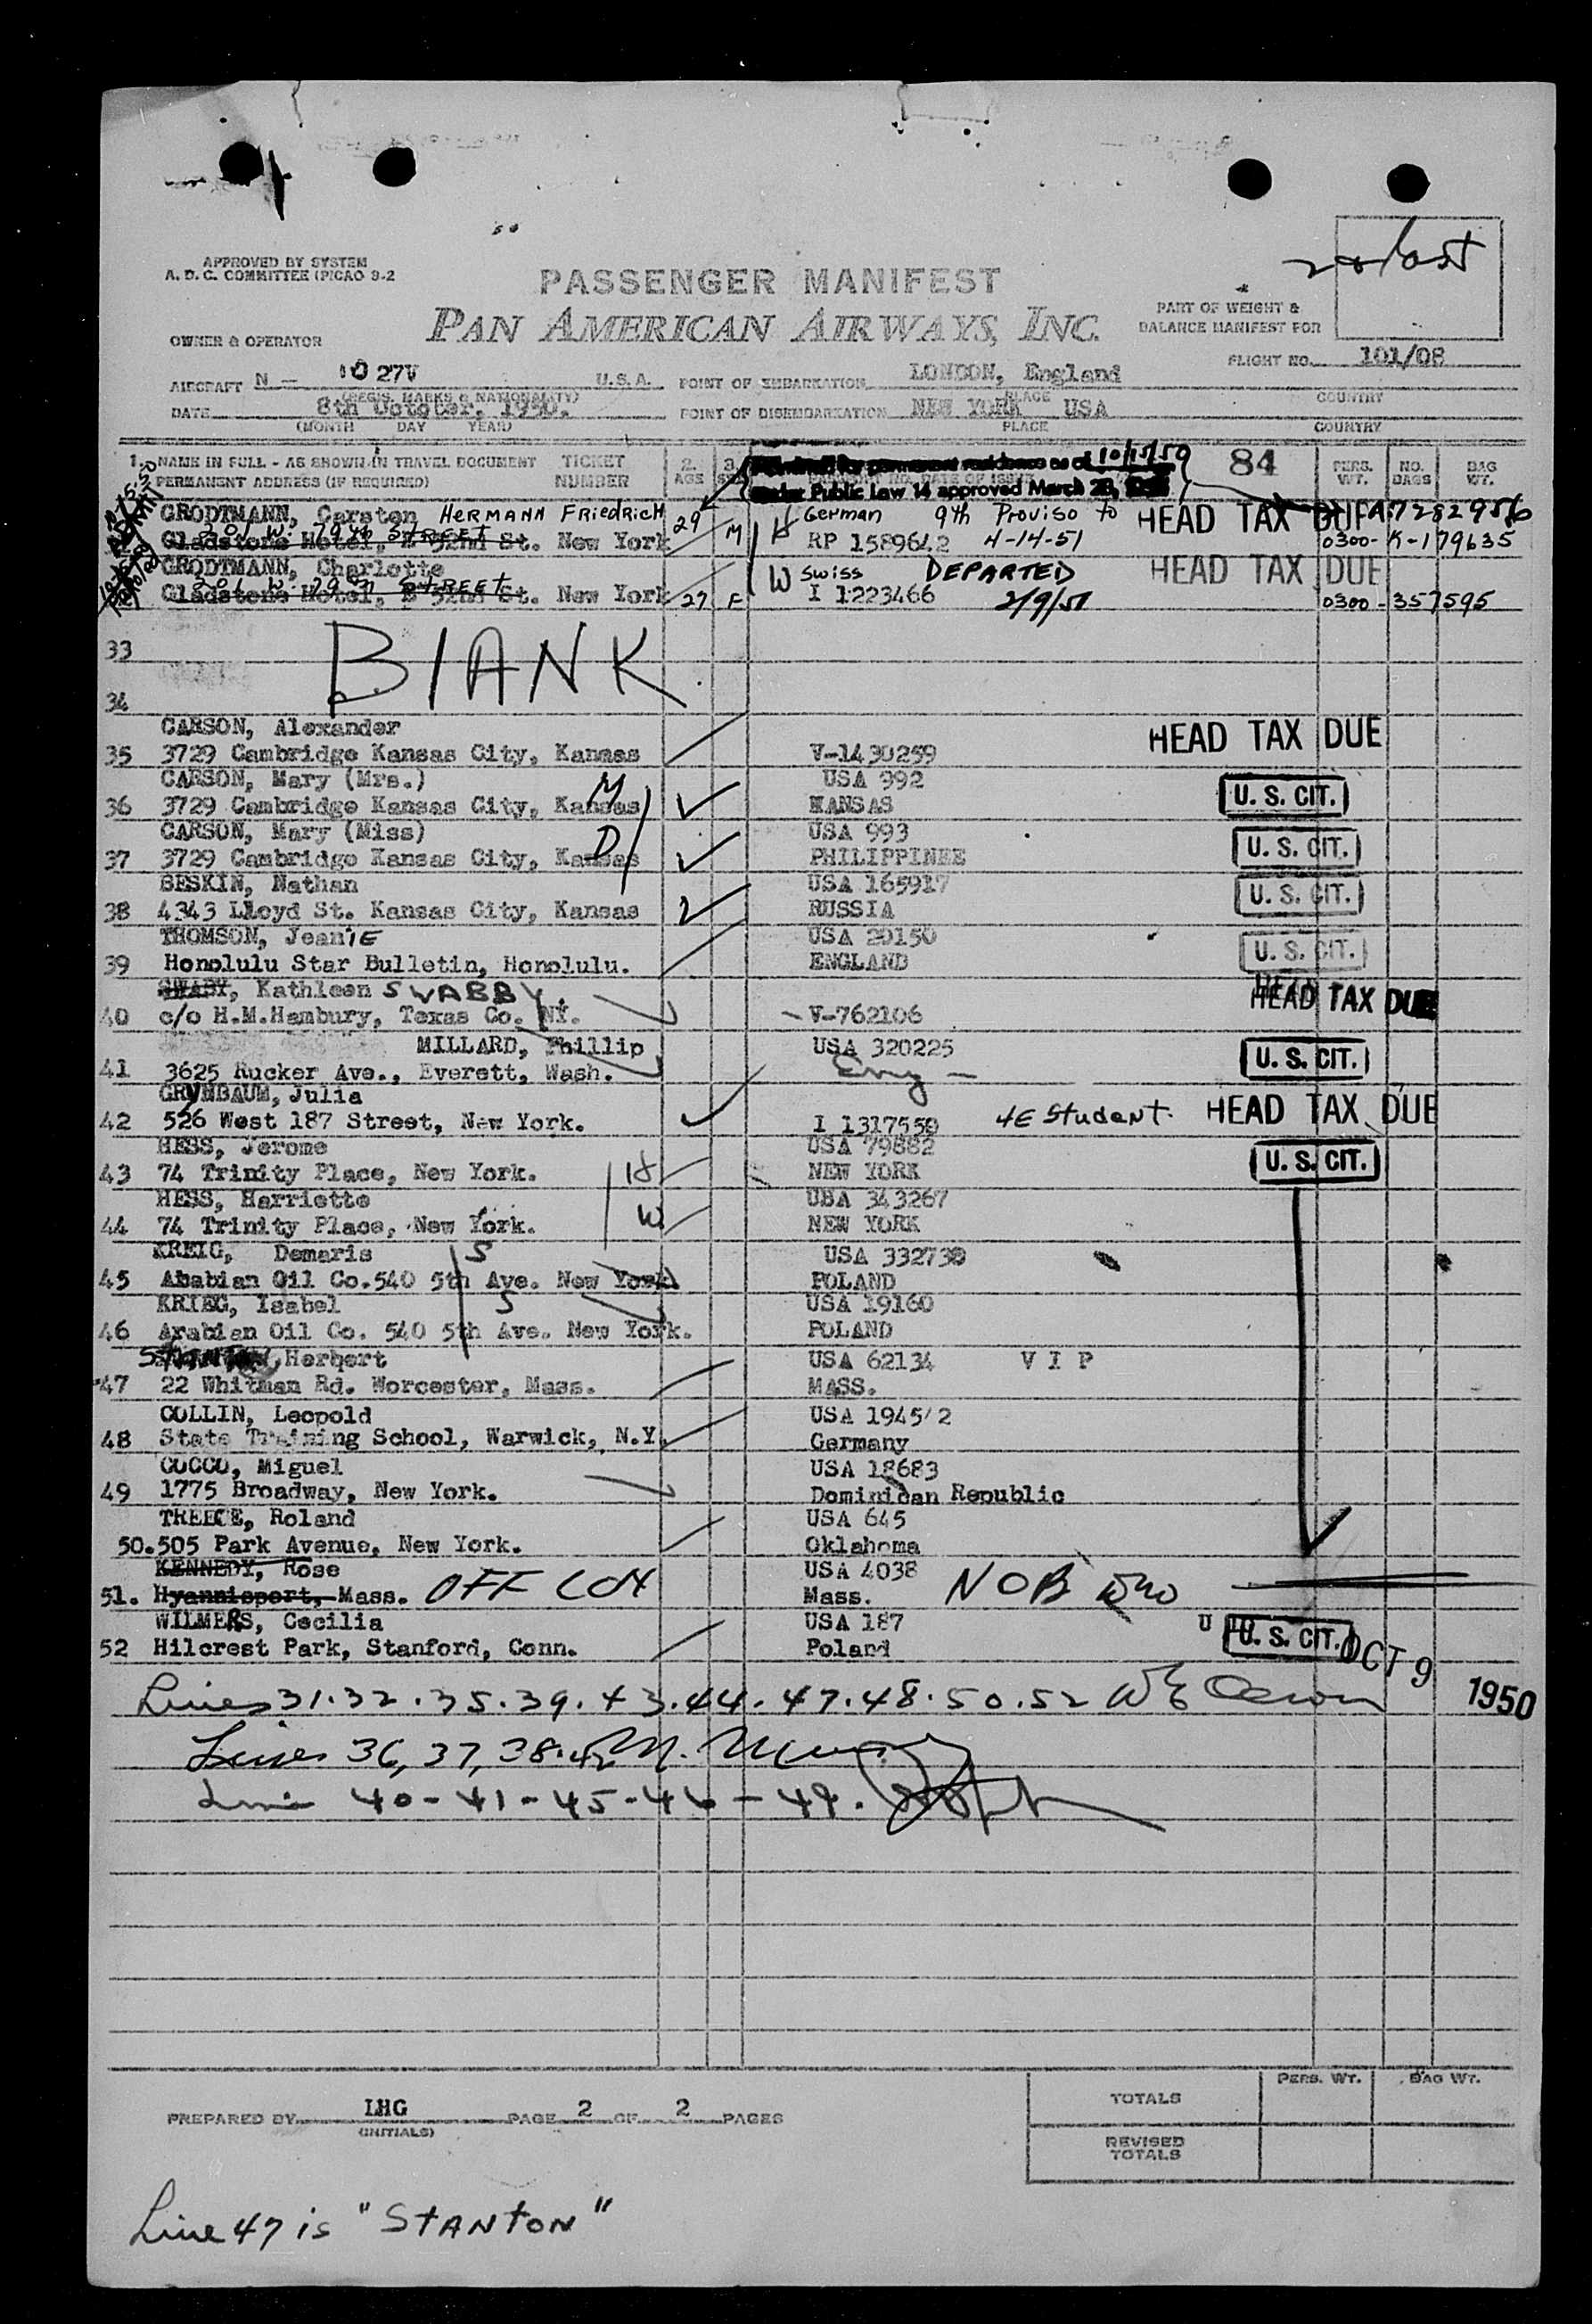 APPROVED BY SYSTEM
A. D. C. COMMITTEE (PICAO 9-2
PASSENGER MANIFEST
PAN AMERICAN AIRWAYS, INC.
OWNER & OPERATOR
PART OF WEIGHT &
BALANCE MANIFEST FOR
FLIGHT NO. 101/08
AIRCRAFT N - 1027V U.S.A. POINT OF EMBARKATION LONDON, England
(REGIS. MARKS & NATIONALITY) PLACE COUNTRY
DATE 8th October, 1950. POINT OF DISEMBARKATION NEW YORK USA
(MONTH DAY YEAR) PLACE COUNTRY
1. NAME IN FULL - AS SHOWN IN TRAVEL DOCUMENT TICKET 2. 3. 10/15/50 84 PERS. NO. BAG
PERMANENT ADDRESS (IF REQUIRED) NUMBER AGE Public Law 14 approved March 28, WT. BAGS WT.
GRODTMANN, Carsten HERMANN FRIEDRICH 29 M H German 9th Proviso to HEAD TAX DUE A7282956
201 W. 79th STREET
Gladstone Hotel, E 52nd St. New York RP 1589642 4-14-51 0300- K-179635
GRODTMANN, Charlotte W Swiss DEPARTED HEAD TAX DUE
201 W. 79th STREET
Gladstone Hotel, E 52nd St. New York 27 F I 1223466 2/9/51 0300 - 357595
33 BLANK
34
CARSON, Alexander HEAD TAX DUE
35 3729 Cambridge Kansas City, Kansas V-1430259
CARSON, Mary (Mrs.) M USA 992
36 3729 Cambridge Kansas City, Kansas KANSAS U. S. CIT.
CARSON, Mary (Miss) D USA 993
37 3729 Cambridge Kansas City, Kansas PHILIPPINES U. S. CIT.
BESKIN, Nathan USA 165917
38 4343 Lloyd St. Kansas City, Kansas RUSSIA U. S. CIT.
THOMSON, JeanIE USA 20150
39 Honolulu Star Bulletin, Honolulu. ENGLAND U. S. CIT.
SWABY, Kathleen SWABBY. HEAD TAX DUE
40 c/o H.M.Hambury, Texas Co. NY. V-762106
MILLARD, Phillip USA 320225
41 3625 Rucker Ave., Everett, Wash. Eng - U. S. CIT.
GRYNBAUM, Julia
42 526 West 187 Street, New York. I 1317559 4E Student. HEAD TAX DUE
HESS, Jerome USA 79882
43 74 Trinity Place, New York. H NEW YORK U. S. CIT.
HESS, Harriette USA 343267
44 74 Trinity Place, New York. W NEW YORK
KREIG, Demaris S USA 332738
45 Ababian Oil Co.540 5th Ave. New York POLAND
KRIEG, Isabel S USA 19160
46 Arabian Oil Co. 540 5th Ave. New York. POLAND
STANTON, Herbert USA 62134 V I P
47 22 Whitman Rd. Worcester, Mass. MASS.
COLLIN, Leopold USA 1945/2
48 State Training School, Warwick, N.Y. Germany
COCCO, Miguel USA 18683
49 1775 Broadway, New York. Dominican Republic
TREECE, Roland USA 645
50. 505 Park Avenue, New York. Oklahoma
KENNEDY, Rose USA 4038
51. Hyannisport, Mass. OFF LDN Mass. NOB
WILMERS, Cecilia USA 187 U
52 Hilcrest Park, Stanford, Conn. Poland U. S. CIT. OCT 9 1950
Lines 31.32.35.39.43.44.47.48.50.52
Lines 36, 37, 38.42
Line 40-41-45-46-49.
PERS. WT. BAG WT.
TOTALS
PREPARED BY LHG PAGE 2 OF 2 PAGES
(INITIALS)
REVISED
TOTALS
Line 47 is "STANTON"